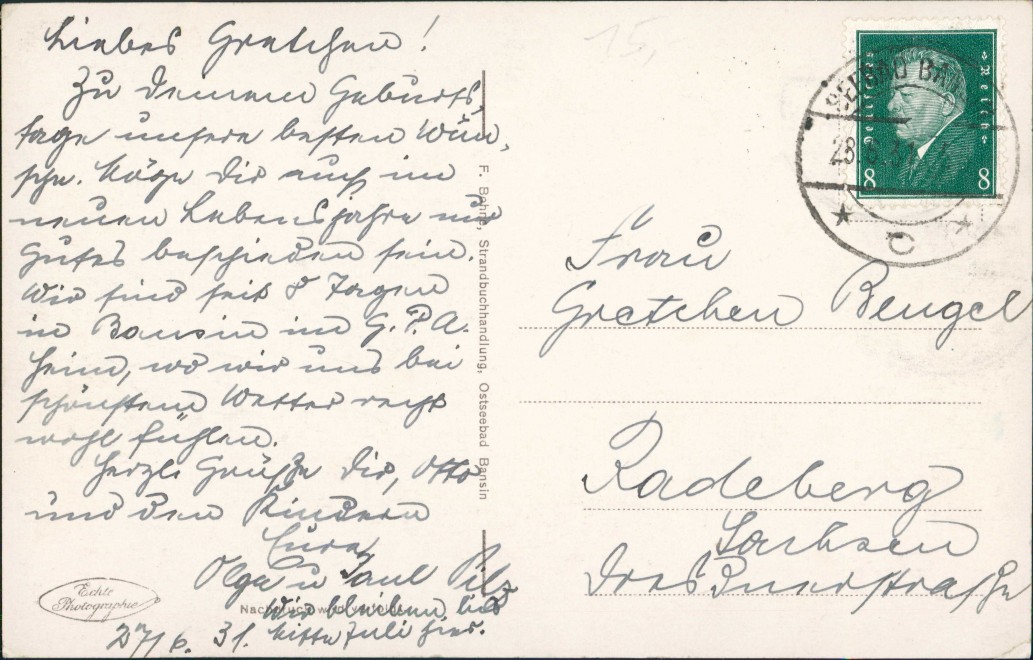 Liebes Gretchen!
Zu Deinem Geburts,
tage unsere besten Wün,
sche. Möge Dir auch im
neuen Lebensjahre nur
Gutes beschieden sein.
Wir sind seit 8 Tagen
in Bansin im G.P.A.
Heim, wo wir uns bei
schönstem Wetter recht
wohl fühlen.
Herzl. Grüße Dir, Otto
und den Kindern
Eure
Olga u. Paul Pilz
Wir bleiben bis
Mitte Juli hier.
27/6. 31.
Echte
Photographie
F. Strandbuchhandlung, Ostseebad Bansin
15,-
Deutsches Reich
8 8
SEEBAD BANSIN
28.6.31
c
Frau
Gretchen Bengel
Radeberg
Sachsen
Dresdnerstraße